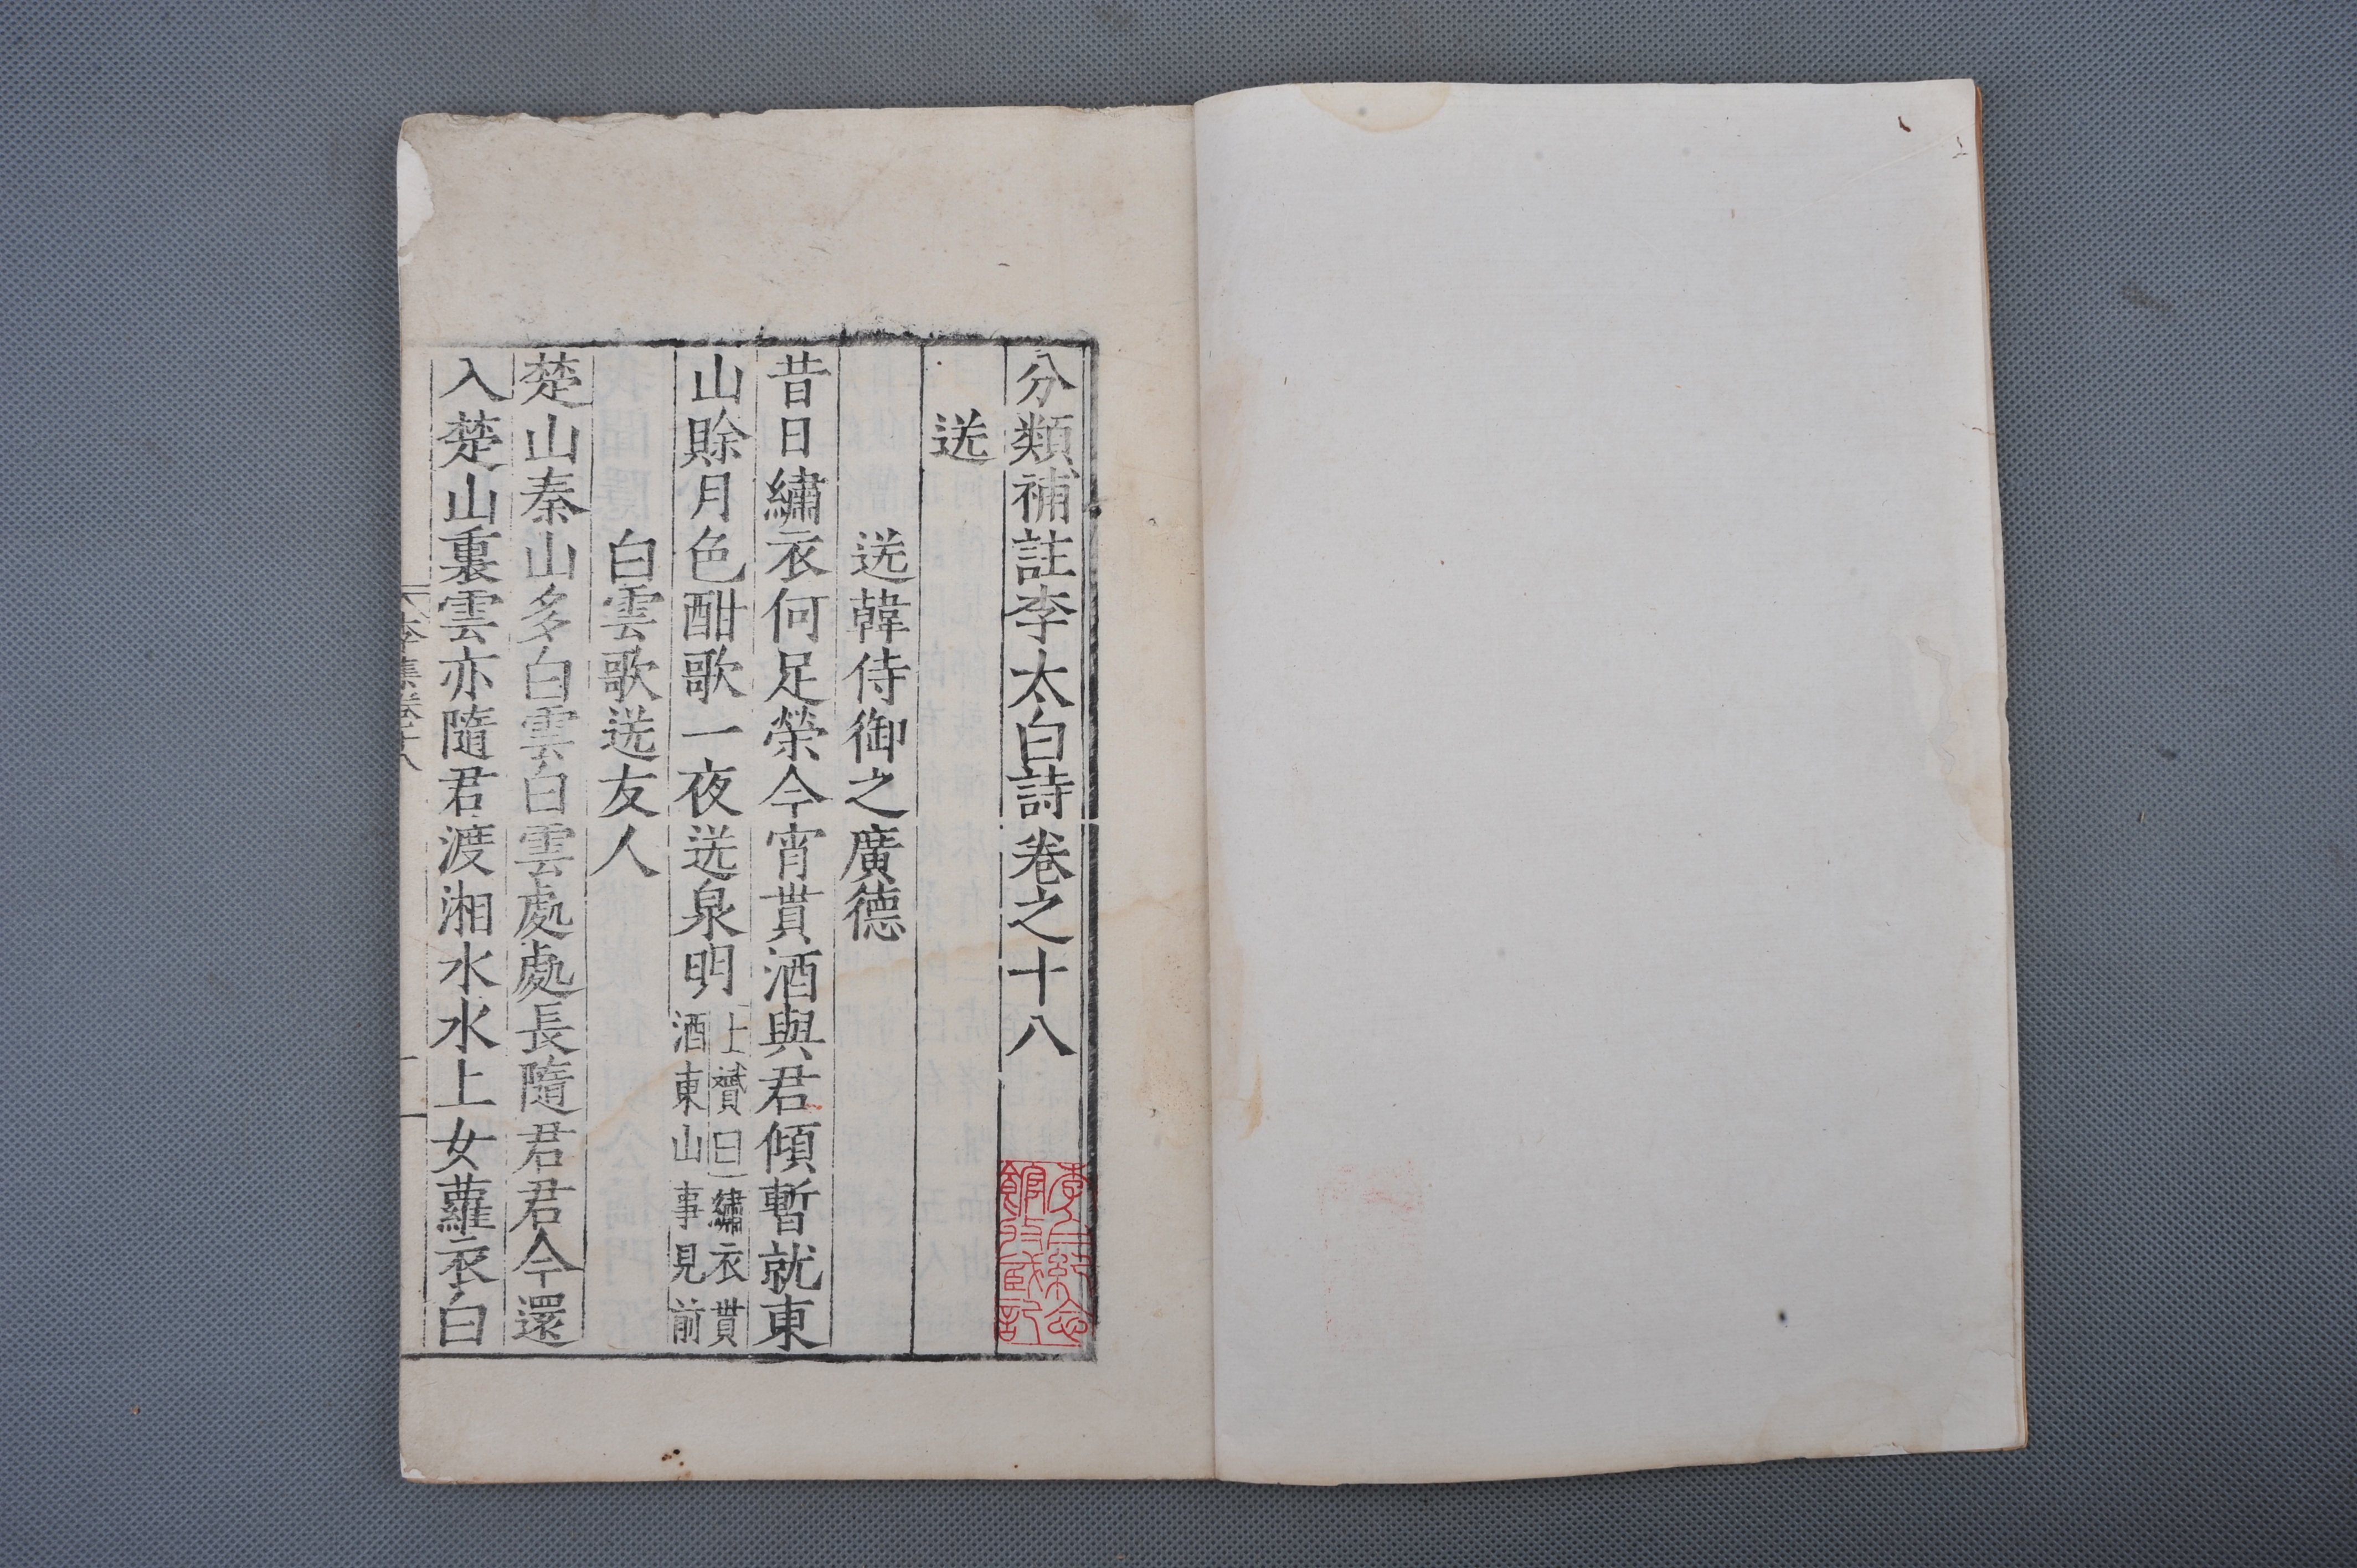 分類補註李太白詩卷之十八
送
送韓侍御之廣德
昔日繡衣何足榮今宵貰酒與君傾暫就東
山賖月色酣歌一夜送泉明
上贇曰繡衣貰
酒東山事見前
白雲歌送友人
楚山秦山多白雲白雲處處長隨君君今還
入楚山裏雲亦隨君渡湘水水上女蘿衣白
李集卷十八
李白紀念
館收藏記